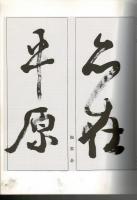 名在
平原